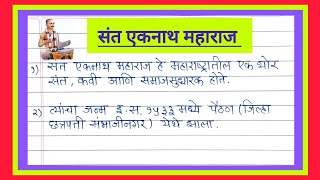 संत एकनाथ महाराज
१) संत एकनाथ महाराज हे महाराष्ट्रातील एक थोर
संत, कवी आणि समाजसुधारक होते.
२) त्यांचा जन्म इ.स. १५३३ मध्ये पैठण (जिल्हा
छत्रपती संभाजीनगर) येथे झाला.